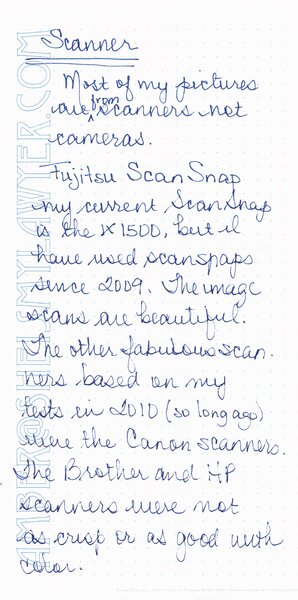 AMBER@SHESMYLAWYER.COM
Scanner
Most of my pictures
are from scanners not
cameras.
Fujitsu ScanSnap
my current ScanSnap
is the iX1500, but I
have used scansnaps
since 2009. The image
scans are beautiful.
The other fabulous scan-
ners based on my
tests in 2010 (so long ago)
were the Canon scanners.
The Brother and HP
scanners were not
as crisp or as good with
color.